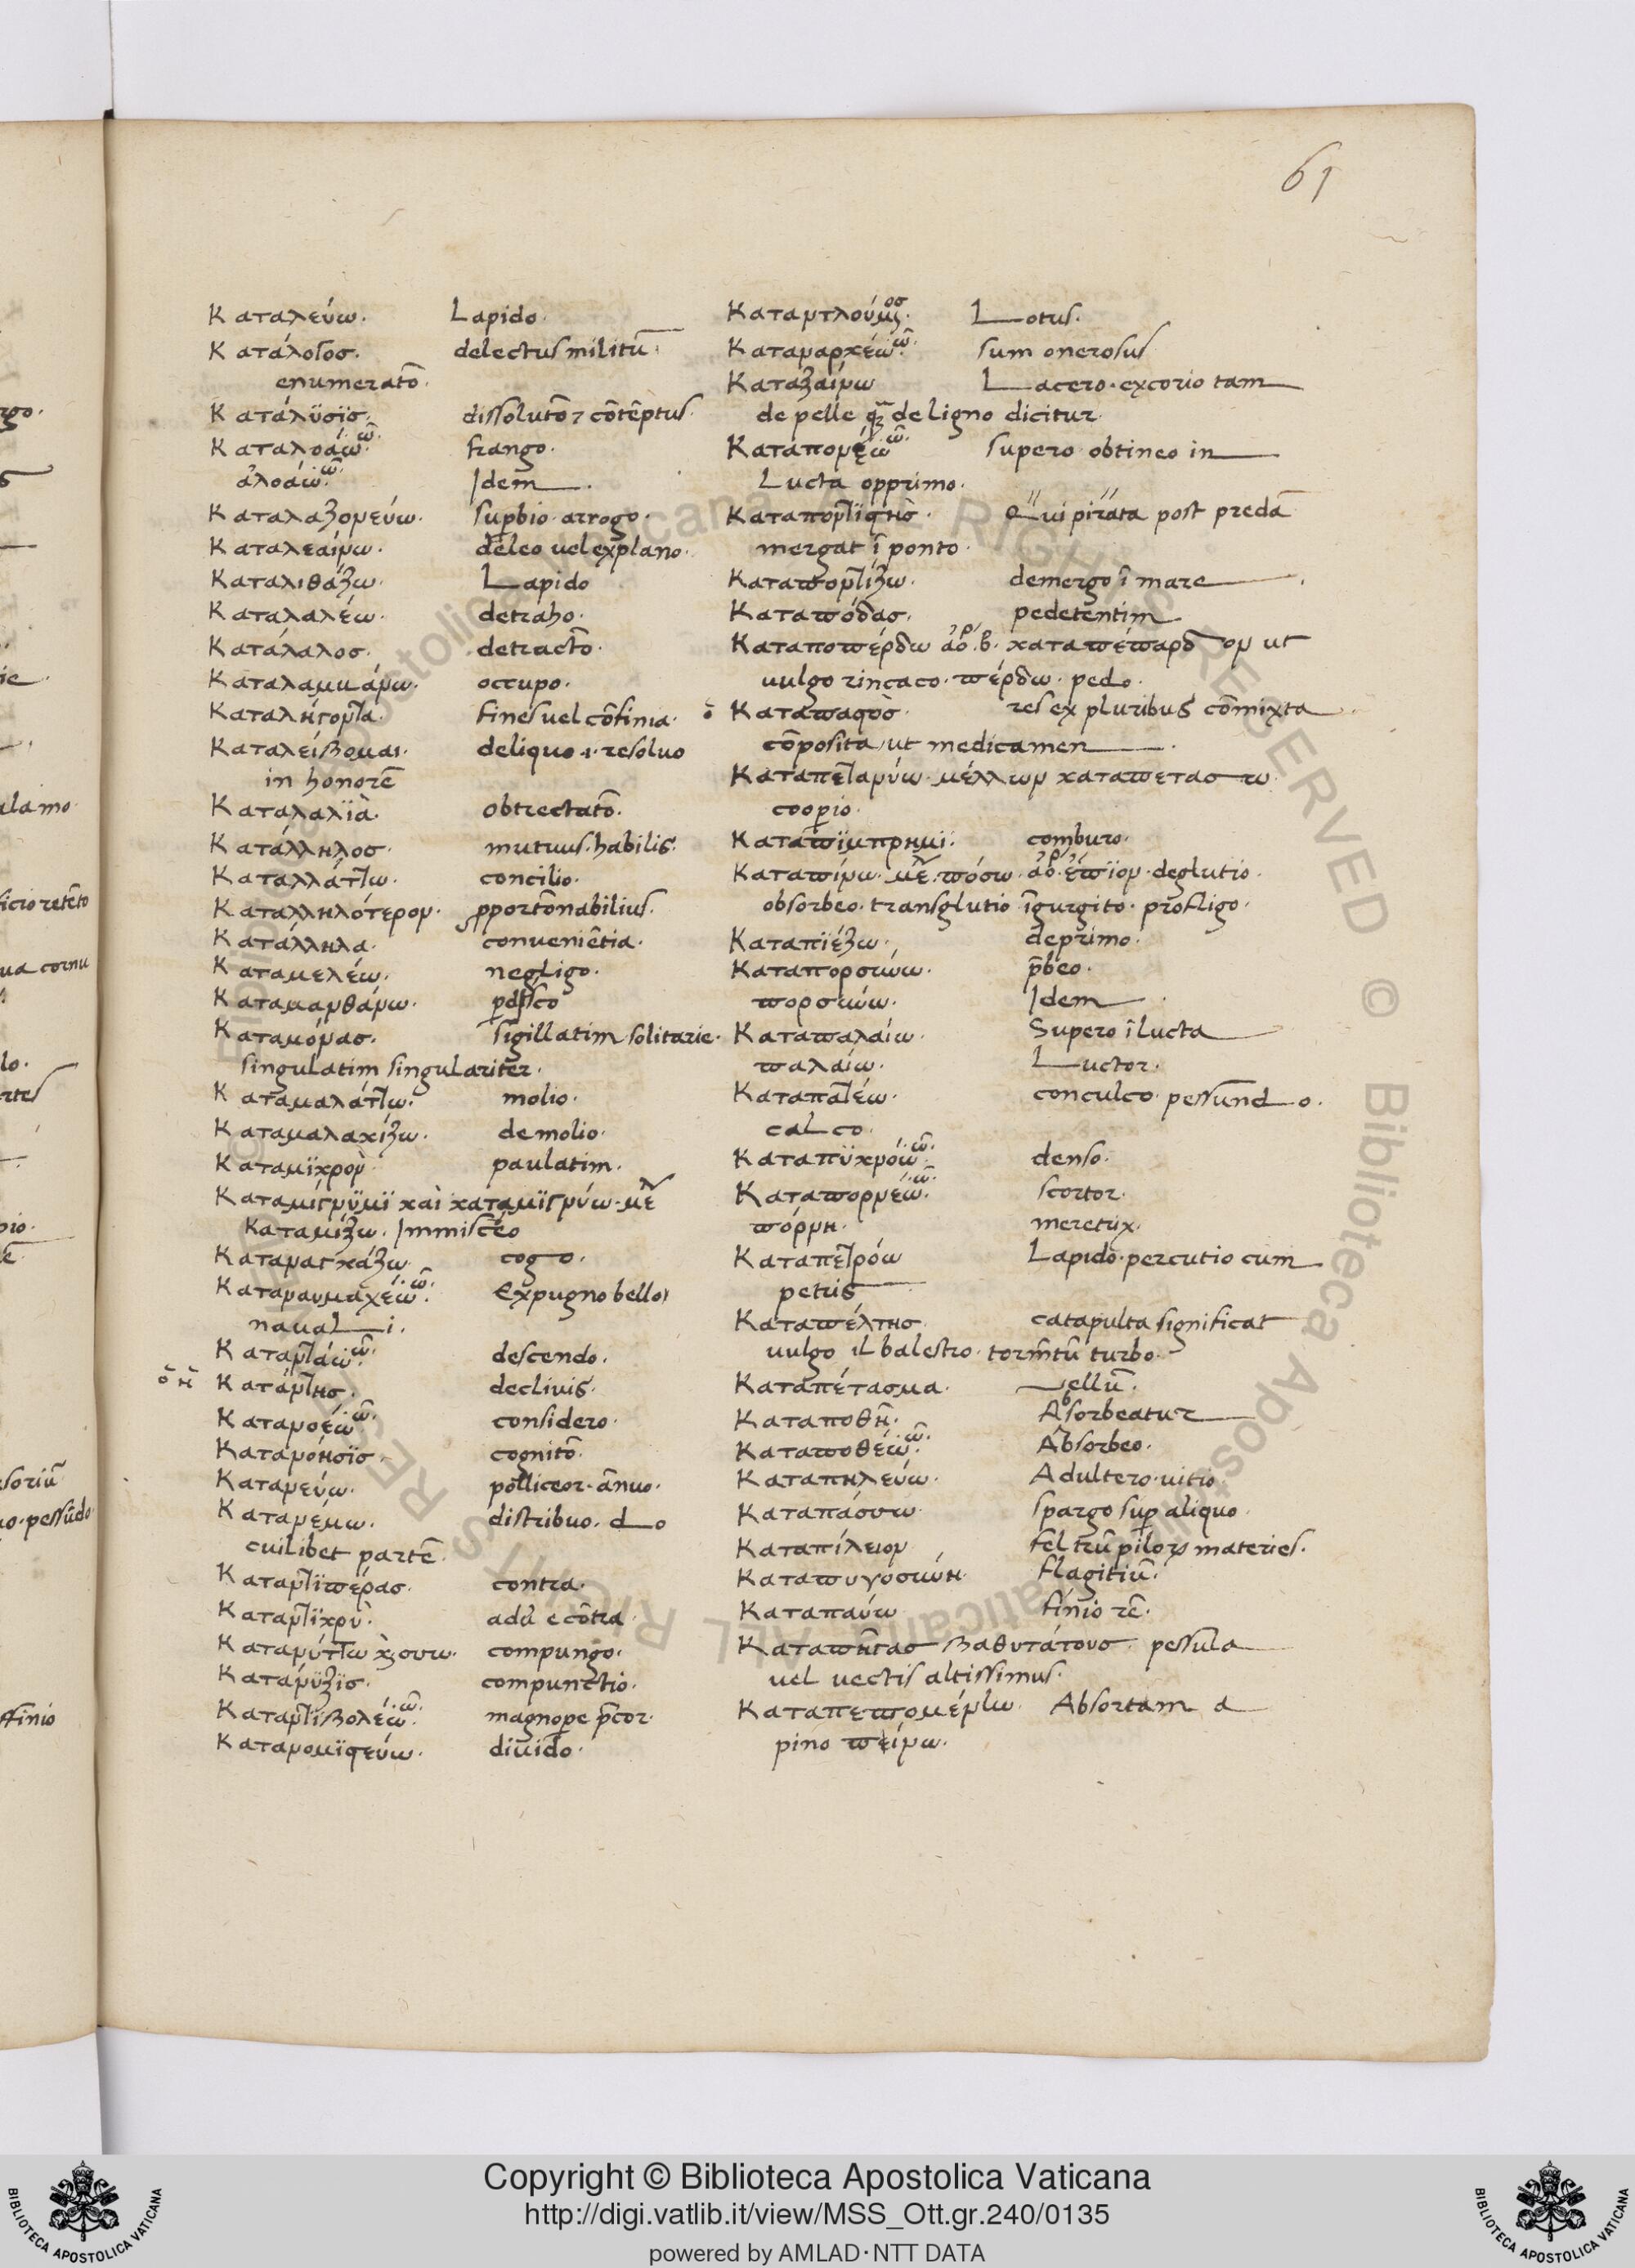 61
Καταλεύω· Lapido·
Κατάλογοσ· delectus militū·
enumeratō·
Κατάλϋσϊσ· dissolutō ⁊ cōtēptus·
Καταλοάω·ῶ· frango·
ἀλοάω·ῶ· Idem
Καταλαζονεύω· supbio· arrogo·
Καταλεαίνω· deleo uel explano·
Καταλιθάζω· Lapido
Καταλαλέω· detraho·
Κατάλαλοσ· detractō·
Καταλαμπάνω· occupo·
Καταλήγοντα· fines uel cōfinia·
Καταλείβομαι· deliquo ·i· resoluo
in honorē
Καταλαλϊὰ· obtrectatō·
Κατάλληλοσ· mutuus· habilis·
Καταλλάττω· concilio·
Καταλληλότερον· pportōnabilius·
Κατάλληλα· conueniētia·
Καταμελέω· negligo·
Καταμανθάνω· pdisco
Καταμόνασ· sigillatim solitarie·
singulatim singulariter·
Καταμαλάττω· molio·
Καταμαλακίζω· demolio·
Καταμϊκρον· paulatim·
Καταμίγνϋμϊ καὶ καταμϊγνύω· μελ
καταμίξω· Immisceo
Καταναγκάζω· cogo·
Καταναυμαχέω·ῶ· Expugno bello
nauali·
Καταντάω·ῶ· descendo·
ὁ ἡ Κατάντησ· decliuis·
Κατανοέω·ῶ· considero·
Κατανόησϊσ· cognitō·
Κατανεύω· polliceor· ānuo·
Κατανέμω· distribuo· do
cuilibet partē·
Καταντϊπέρασ· contra·
Καταντϊκρὺ· adū e cōtra·
Κατανύττω κ σσω· compungo·
Κατάνϋξϊσ· compunctio·
Καταντϊβολέω·ῶ· magnope pcor·
Κατανομϊτεύω· diuido·
Lotus·
Καταναρκέω·ῶ· sum onerosus
Καταξαίνω Lacero· excorio tam
de pelle q de ligno dicitur·
Καταπονέω·ῶ· supero obtineo in
Lucta opprimo·
Καταποντϊστὴσ· Qui pirata post predā
mergat ī ponto·
Καταποντίζω· demergo ī mare
Καταπόδασ· pedetentim
Καταποπέρδω ἀό·β· καταπέπαρδον ut
uulgo rincaco· πέρδω· pedo·
ὁ Καταπαστὸσ· res ex pluribus cōmixta
cōposita ut medicamen
Καταπεταννύω· μέλλων καταπετασω
coopio·
Καταπίμπρημϊ· comburo·
Καταπίνω· μελ· πόσω· ἀό· ἔπϊον· deglutio·
obsorbeo· transglutio īgurgito· profligo·
Καταπϊέζω· deprimo·
Καταπορσύνω· pbeo·
πορσύνω· Idem
Καταπαλαίω· Supero ī lucta
παλαίω· Luctor·
Καταπατέω· conculco· pessundo·
calco·
Καταπϋκνόω·ῶ· denso·
Καταπορνέω·ῶ· scortor·
πόρνη· meretrix·
Καταπετρόω Lapido· percutio cum
petris
Καταπέλτησ· catapulta significat
uulgo il balestro· tormtū turbo·
Καταπέτασμα· uellū·
Καταποθῆ· Absorbeatur
Καταποθέω·ῶ· Absorbeo·
Καταπηλεύω· Adultero· uitio
Καταπάσσω· spargo sup aliquo·
Καταπίλειον feltrū pilorum materies·
Καταπυγοσύνη· flagitiū·
Καταπαύω finio rē·
Καταπῆγασ βαθυτάτουσ· pessula
uel uectis altissimus·
Καταπεπομένω· Absortam a
pino πείνω·